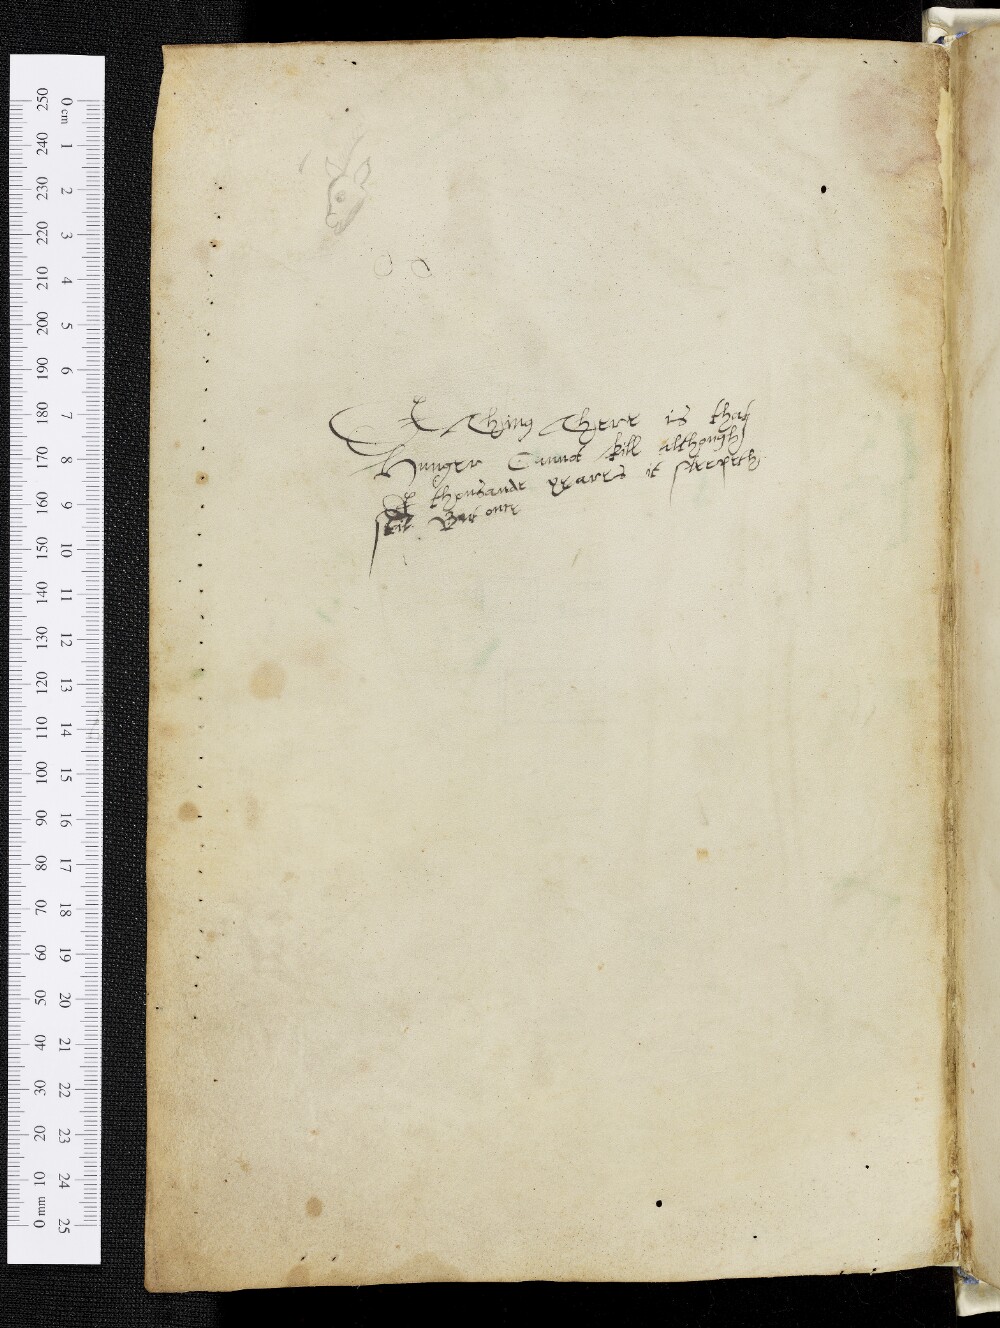 A Thing There is that
Hunger Cannot kill although
A thousande yeares it sleepeth
0 cm 1 2 3 4 5 6 7 8 9 10 11 12 13 14 15 16 17 18 19 20 21 22 23 24 25
250 240 230 220 210 200 190 180 170 160 150 140 130 120 110 100 90 80 70 60 50 40 30 20 10 0 mm